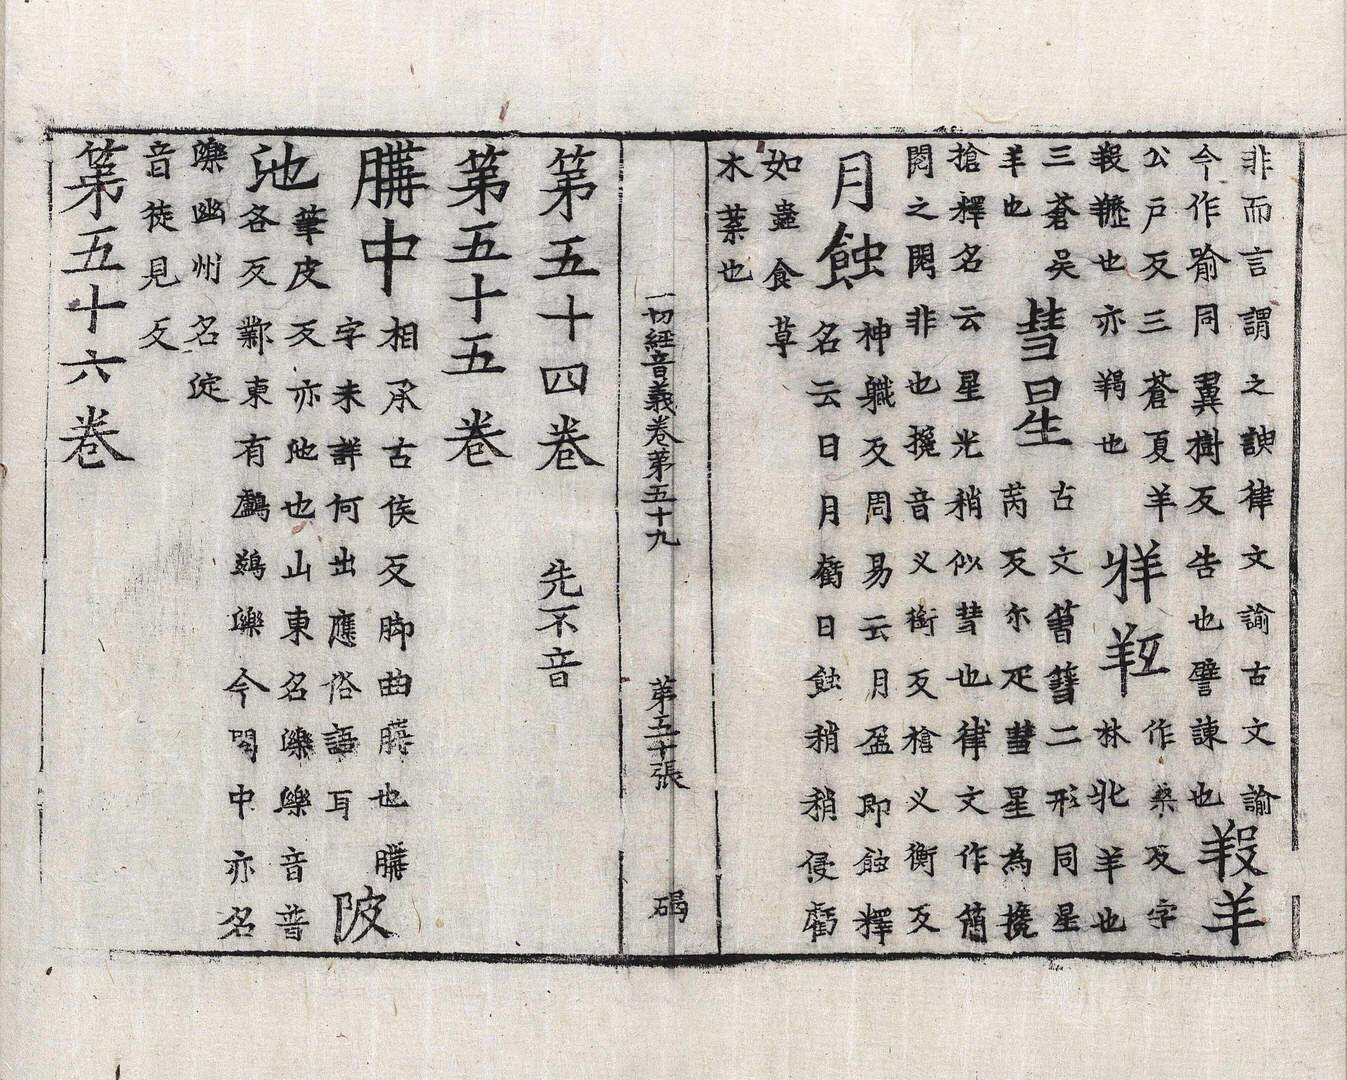 非而言謂之諛律文諭古文諭
今作喻同翼樹反告也譬諫也羖羊
公戶反三蒼夏羊
羖䍽也亦羯也
牂羝
作桑反字
林牝羊也
三蒼吳
羊也
彗星
古文篲二形同星
芮反尔疋彗星為攙
搶釋名云星光稍似彗也律文作簡
閱之閱非也攙音义銜反槍义衡反
月蝕
神軄反周易云月盈即蝕釋
名云日月虧日蝕稍稍侵虧
如蟲食草
木葉也
一切經音義卷第五十九
第五十張
碣
第五十四卷 先不音
第五十五卷
膞中
相承古侯反脚曲也
字未詳何出應俗語耳
陂
池
筆皮反亦池也山東名濼濼音普
各反鄴東有鸕鷀濼今関中亦名
濼幽州名淀
音徒見反
第五十六卷